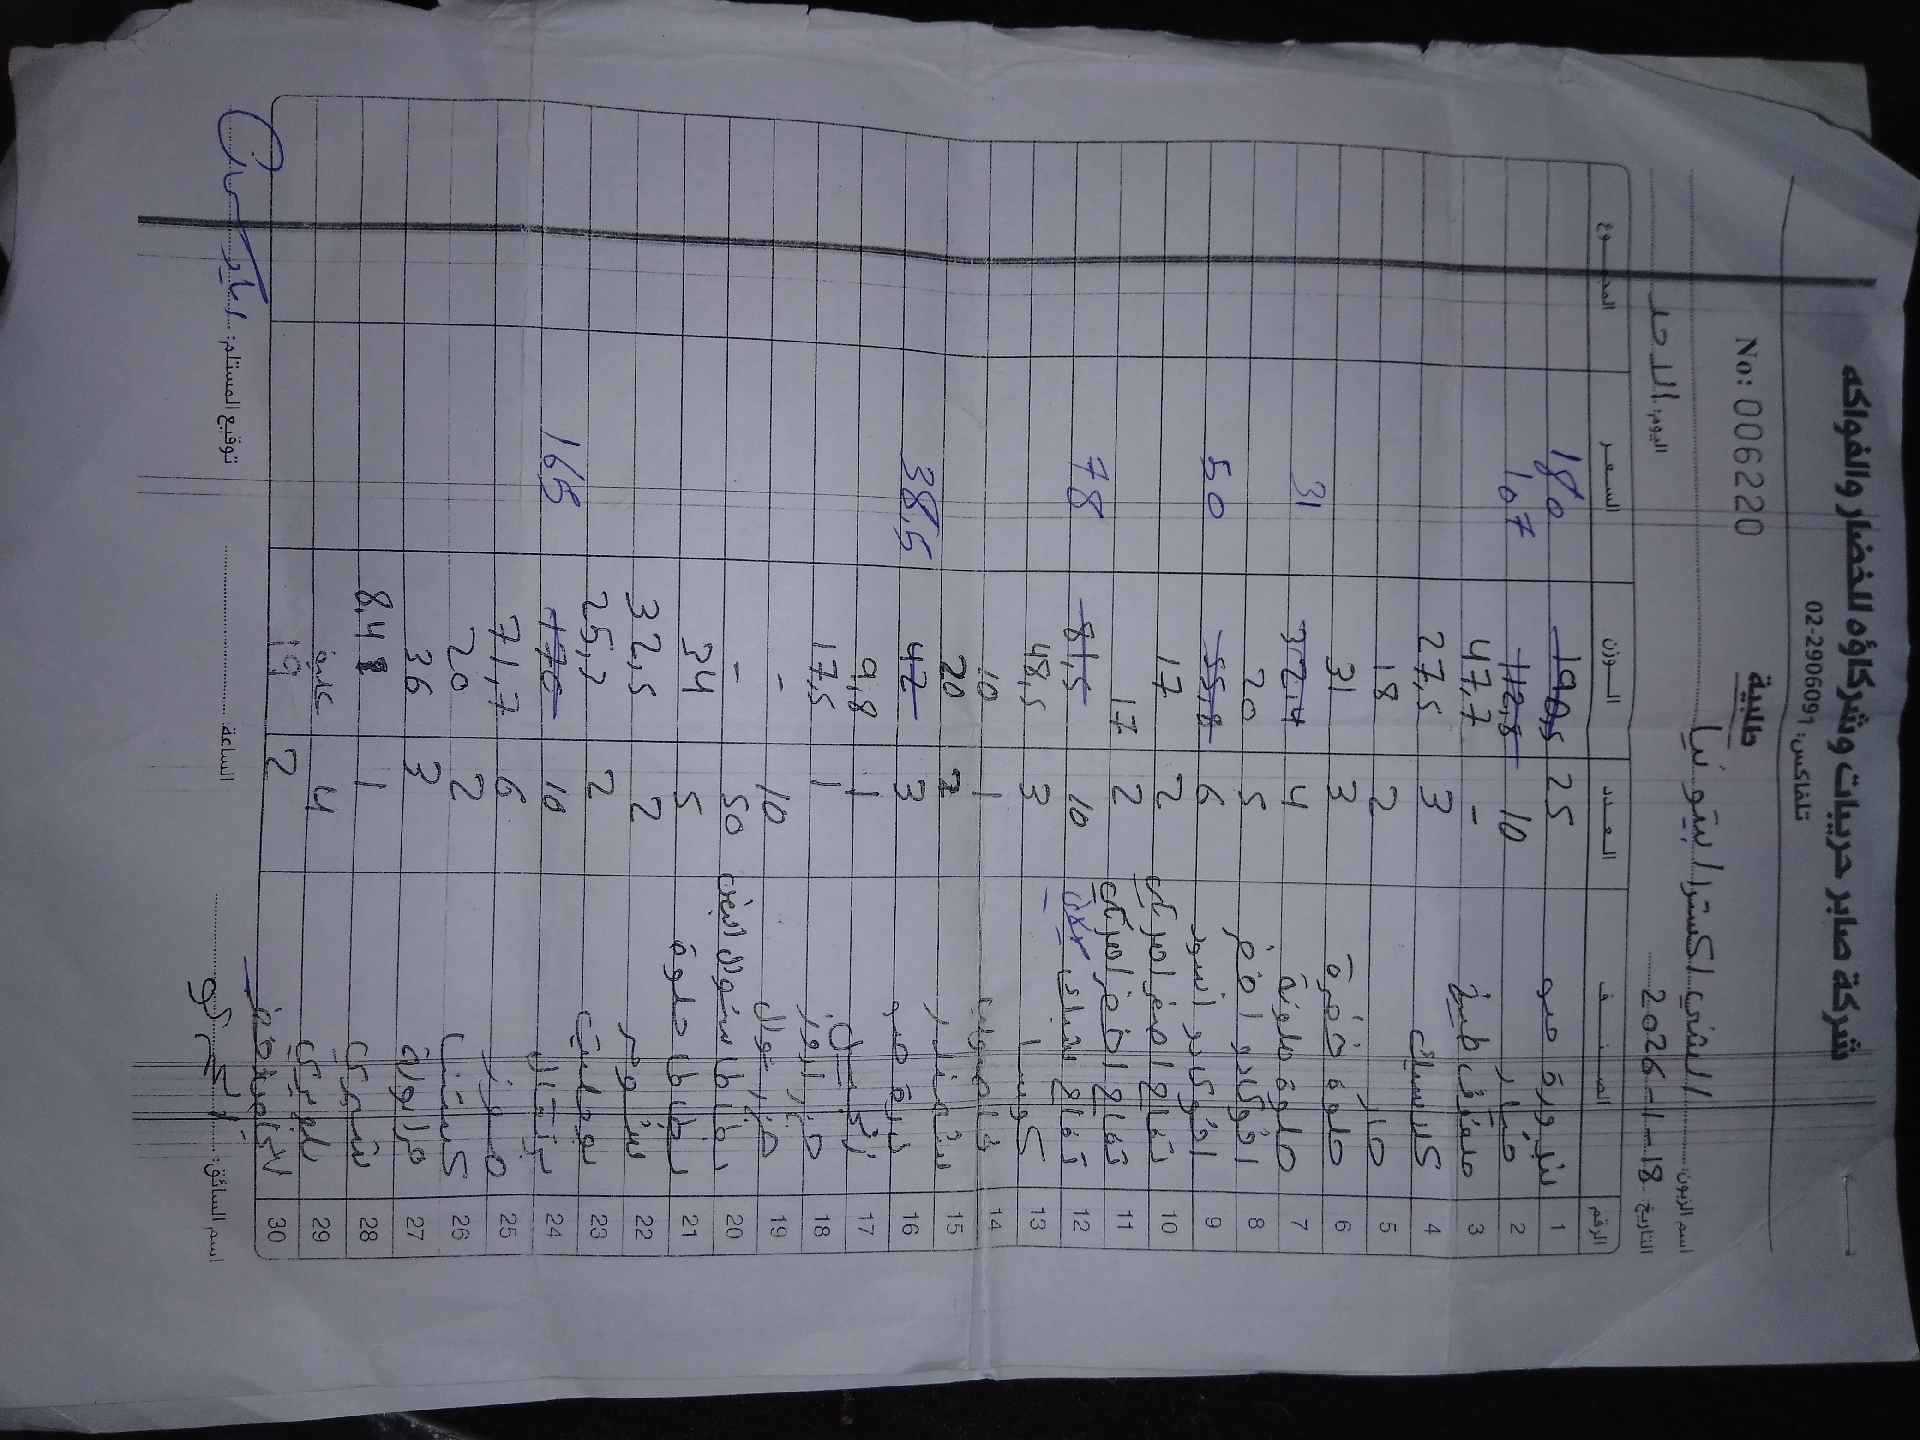 شركة صابر حربيات وشركاؤه للخضار والفواكه
تلفاكس: 02-2906091
طلبية
No: 006220
اسم الزبون: الشني اكسترا / بيتونيا
التاريخ: 18-1-2026 اليوم: الاحد
الرقم الصنف العدد الوزن السعر المجموع
1 بندورة حبو 25 190,5 180
2 خيار 10 112,8 107
3 ملفوف طبيخ - 47,7
4 كلاسيك 3 27,5
5 حار 2 18
6 حلوة خضرة 3 31
7 حلوة ملونة 4 32,4 31
8 افوكادو اخضر 5 20
9 افوكادو اسود 6 55,8 50
10 تفاح اصفر امريكي 2 17
11 تفاح اخضر امريكي 2 17
12 تفاح سكري 10 81,5 78
13 كوسا 3 48,5
14 فاصوليا 1 10
15 شمندر 2 20
16 درة حبو 3 42 38,5
17 زنجبيل 1 9,8
18 جزر اروز 1 17,5
19 جزر شوال 10 -
20 بطاطا شوال ابيض 50 -
21 بطاطا حلوة 5 34
22 شوم 2 32,5
23 بوملي 2 25,2
24 برتقال 10 170 165
25 موز 6 71,7
26 كستنا 2 20
27 فراولة 3 36
28 شومري 1 8,4
29 بلوبيري 4 علبة
30 2 19
اسم السائق: الساعة: توقيع المستلم: